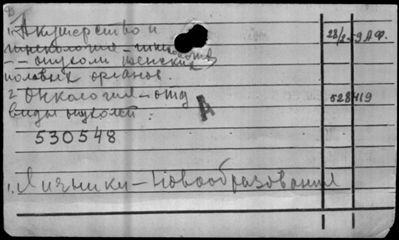 1. Акушерство и
гинекология —
— — опухоли женских
половых органов.
2 — Онкология — отд
виды опухолей:
530548
1. Яичники — Новообразования
28/
59 А.Ф.
528419
А